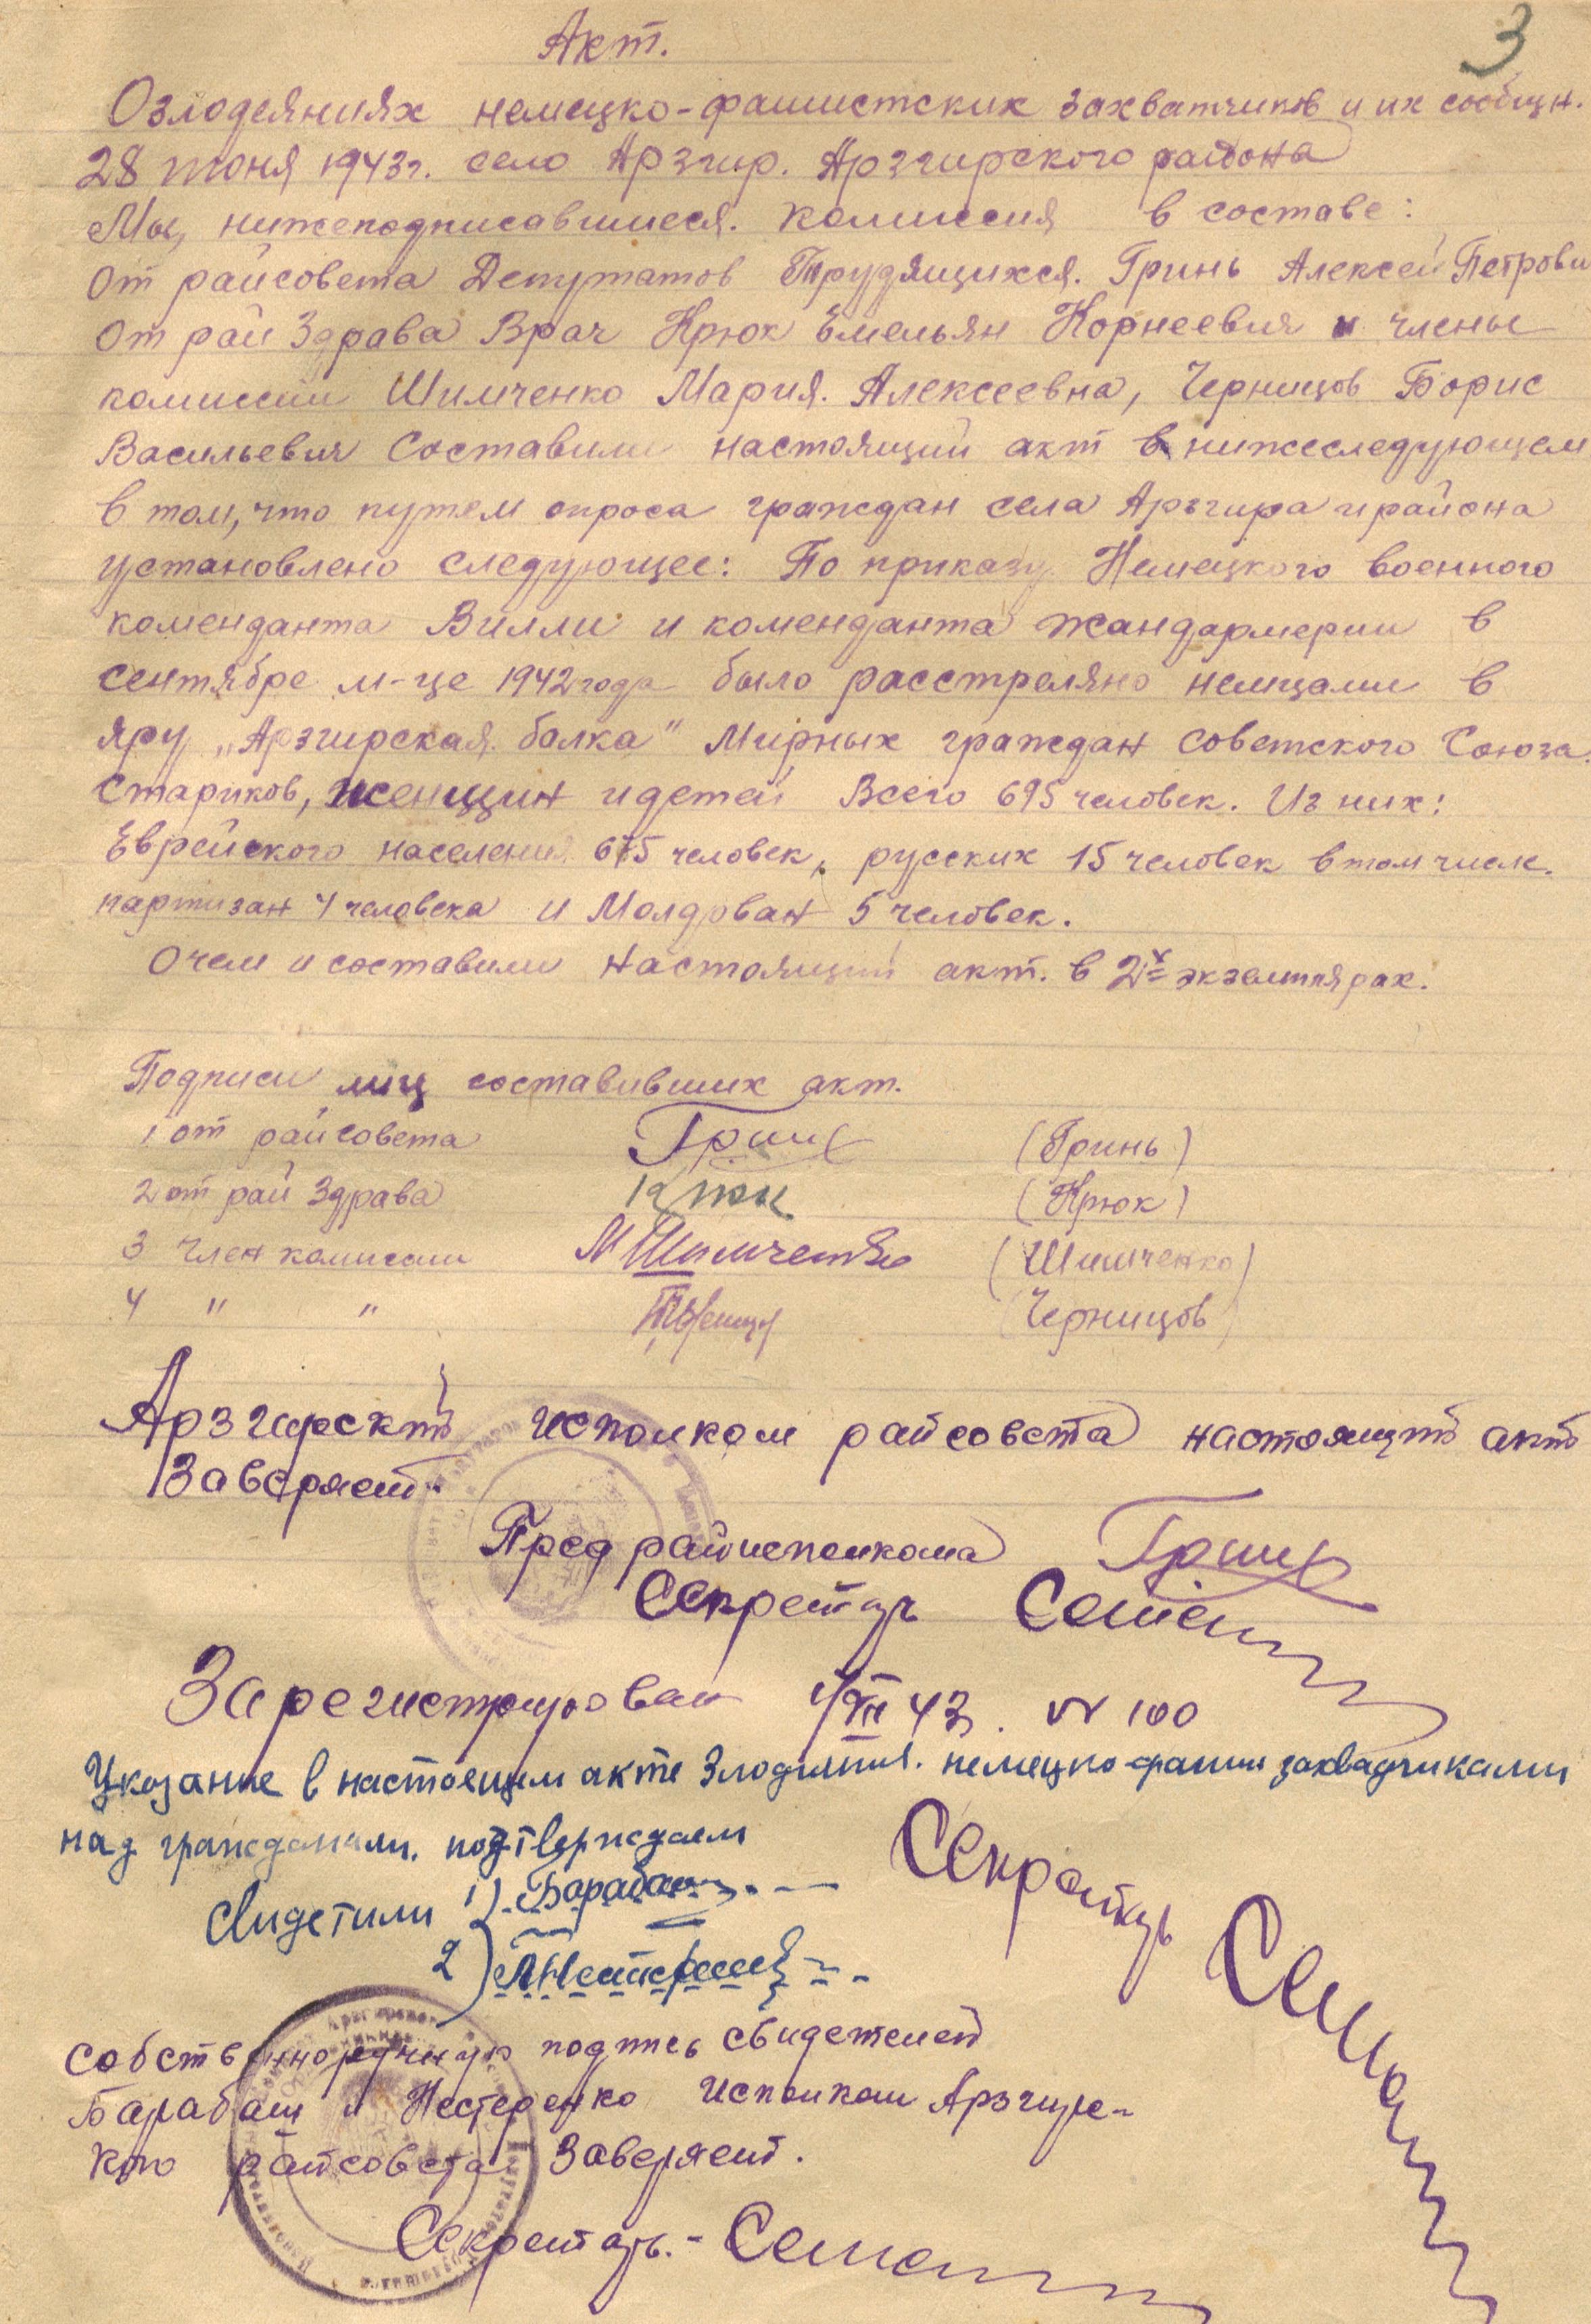 3
Акт.
О злодеяниях немецко-фашистских захватчиков и их сообщн.
28 июня 1943г. село Арзгир. Арзгирского района
Мы, нижеподписавшиеся. комиссия в составе:
От райсовета Депутатов Трудящихся. Гринь Алексей Петрови
От рай Здрава Врач Крюк Емельян Корнеевич и члены
комиссии Шимченко Мария. Алексеевна, Черницов Борис
Васильевич Составили настоящий акт в нижеследующем
в том, что путем опроса граждан села Арзгира и района
установлено следующее: По приказу Немецкого военного
коменданта Вилли и коменданта жандармерии в
сентябре м-це 1942 года было расстреляно немцами в
яру „Арзгирская балка" Мирных граждан Советского Союза.
Стариков, женщин и детей Всего 695 человек. Из них:
Еврейского населения 675 человек, русских 15 человек в том числе.
партизан 4 человека и Молдован 5 человек.
О чем и составили настоящий акт. в 2х экземплярах.
Подписи лиц составивших акт.
1 от райсовета Гринь (Гринь)
2 от рай Здрава Крюк (Крюк)
3 Член комиссии М Шимченко (Шимченко)
4 " " (Черницов)
Арзгирский исполком райсовета настоящий акт
Заверяет.
Пред райисполкома Гринь
Секретарь
Зарегистрирован 1/VII 43. N 100
Указание в настоящем акте немецко-фашис захвадчиками
над гражданами. подтверждаем
Свидетили 1) Барабаш
2)
Секретарь
Собственноручную подпись свидетелей
Барабаш и Нестеренко Исполком Арзгирс-
кого райсовета Заверяет.
Секретарь. -